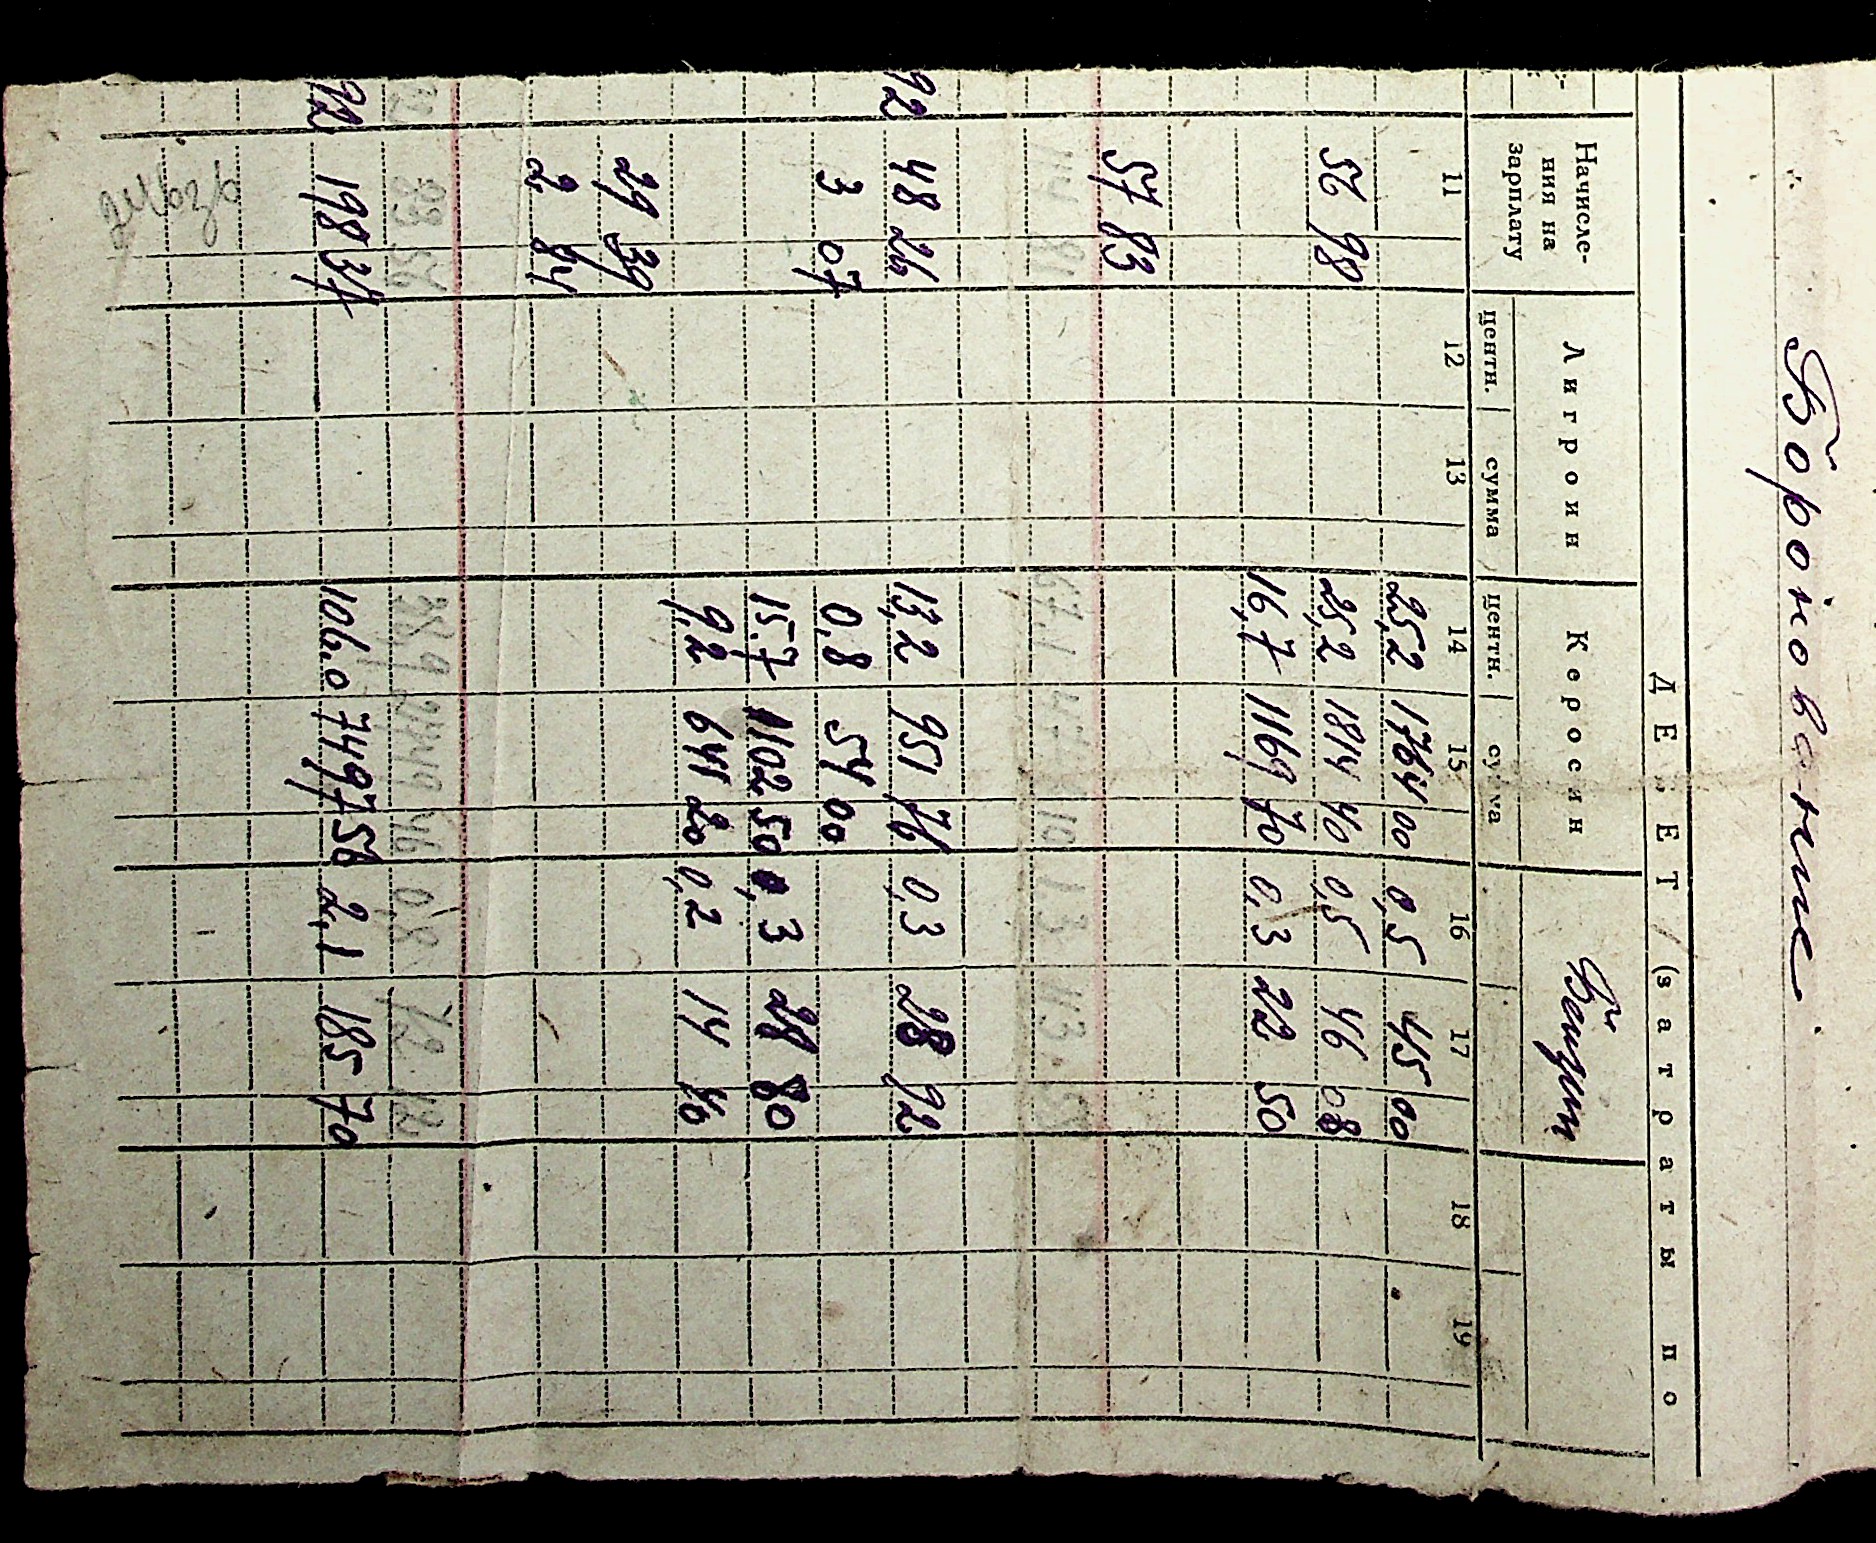 Боронование
ДЕБЕТ / (затраты по
Начисле-ния на зарплату Лигроин Керосин Бензин
центн. сумма центн. сумма
11 12 13 14 15 16 17 18 19
25,2 1764 00 0,5 45 00
56 98 25,2 1814 40 0,5 46 08
16,7 1169 70 0,3 22 50
57 83
92 48 26 13,2 951 76 0,3 28 92
3 07 0,8 54 00
15,7 1102 50 0,3 28 80
9,2 641 20 0,2 14 40
29 39
2 84
92 198 37 106.0 7497 56 2,1 185 70